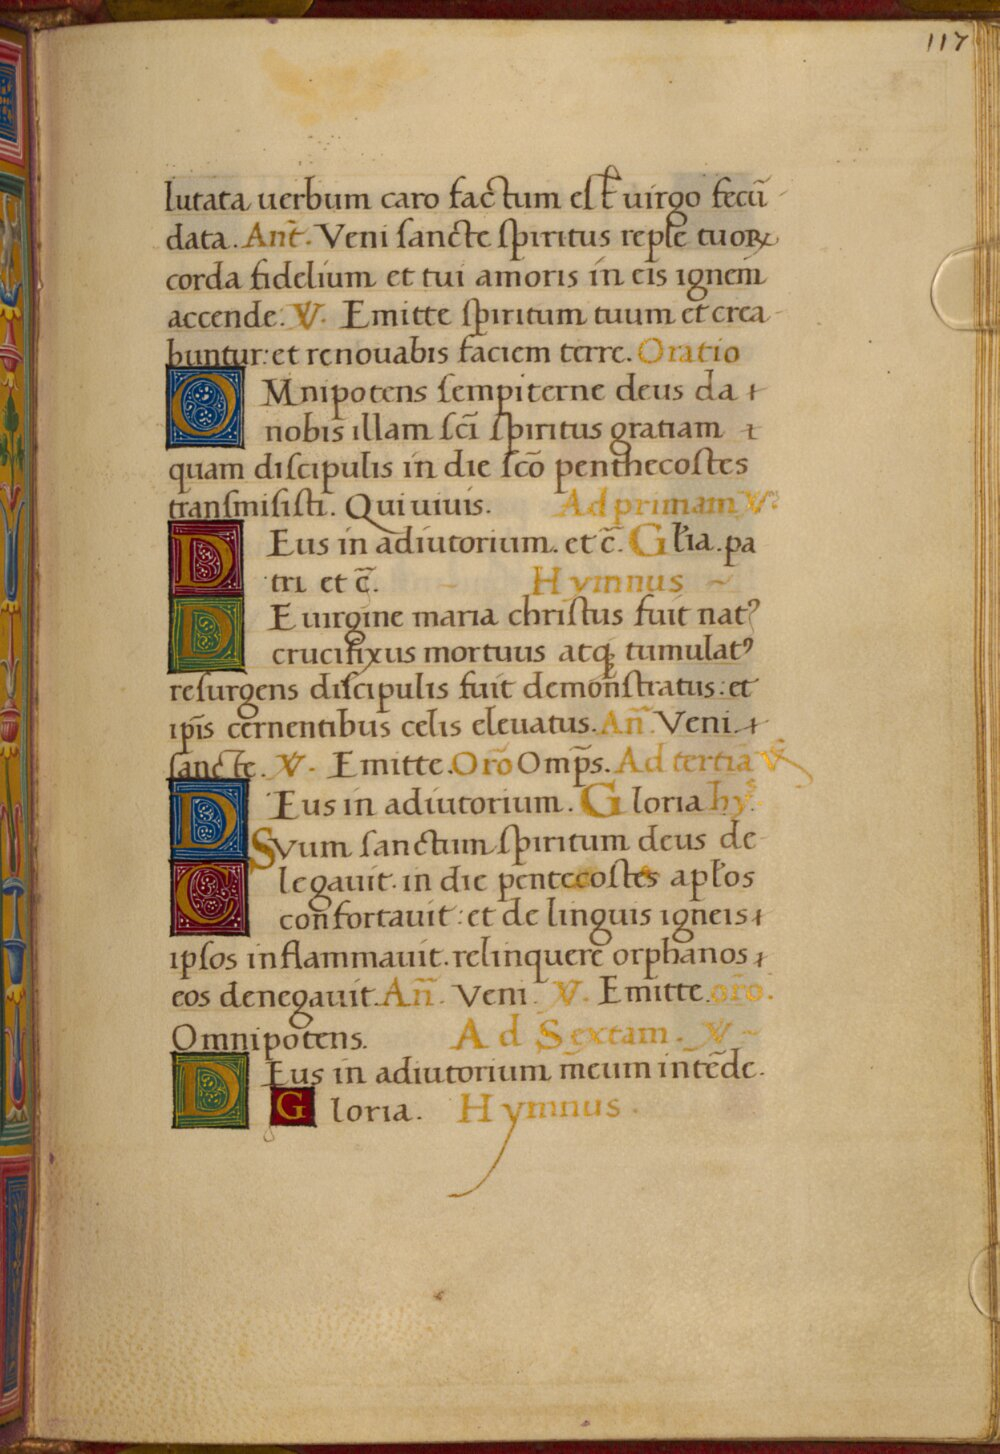 117
lutata uerbum caro factum est uirgo fecū
data. Ant̄. Veni sancte spiritus reple tuoꝝ
corda fidelium et tui amoris in eis ignem
accende. V. Emitte spiritum tuum et crea
buntur: et renouabis faciem terre. Oratio
OMnipotens sempiterne deus da
nobis illam scī spiritus gratiam
quam discipulis in die scō penthecostes
transmisisti. Qui uiuis. Ad primam V.
DEus in adiutorium. et c̄. Gl'ia. pa
tri et c̄. Hymnus
DE uirgine maria christus fuit natꝰ
crucifixus mortuus atqꝫ tumulatꝰ
resurgens discipulis fuit demōnstratus: et
ip̄is cernentibus celis eleuatus. An̄. Veni
sancte. V. Emitte. Orō Omp̄s. Ad tertiā V
DEus in adiutorium. Gloria hyꝰ.
SVum sanctum spiritum deus de
Legauit. in die pentecostes apl'os
confortauit: et de linguis igneis
ipsos inflammauit. relinquere orphanos
eos denegauit. An̄. Veni. V. Emitte. orō.
Omnipotens. Ad Sextam. V
DEus in adiutorium meum intēde.
Gloria. Hymnus.